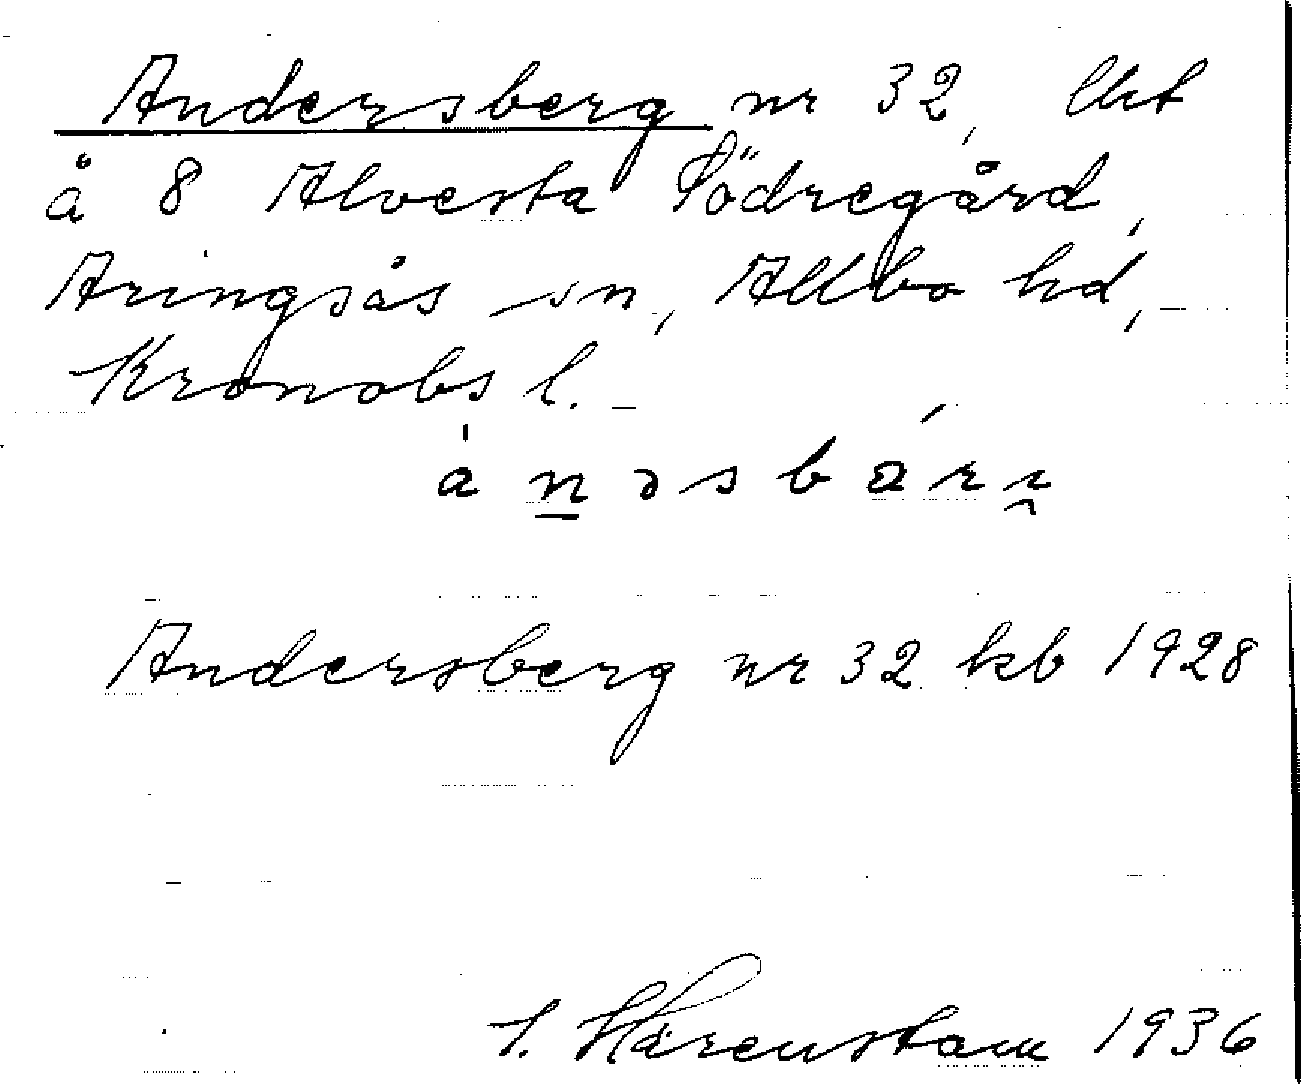 Andersberg nr 32, lht
å 8 Alvesta Södregård,
Aringsås sn, Allbo hd,
Kronobs l.
Andersberg nr 32 kb 1928
S. Härenstam 1936